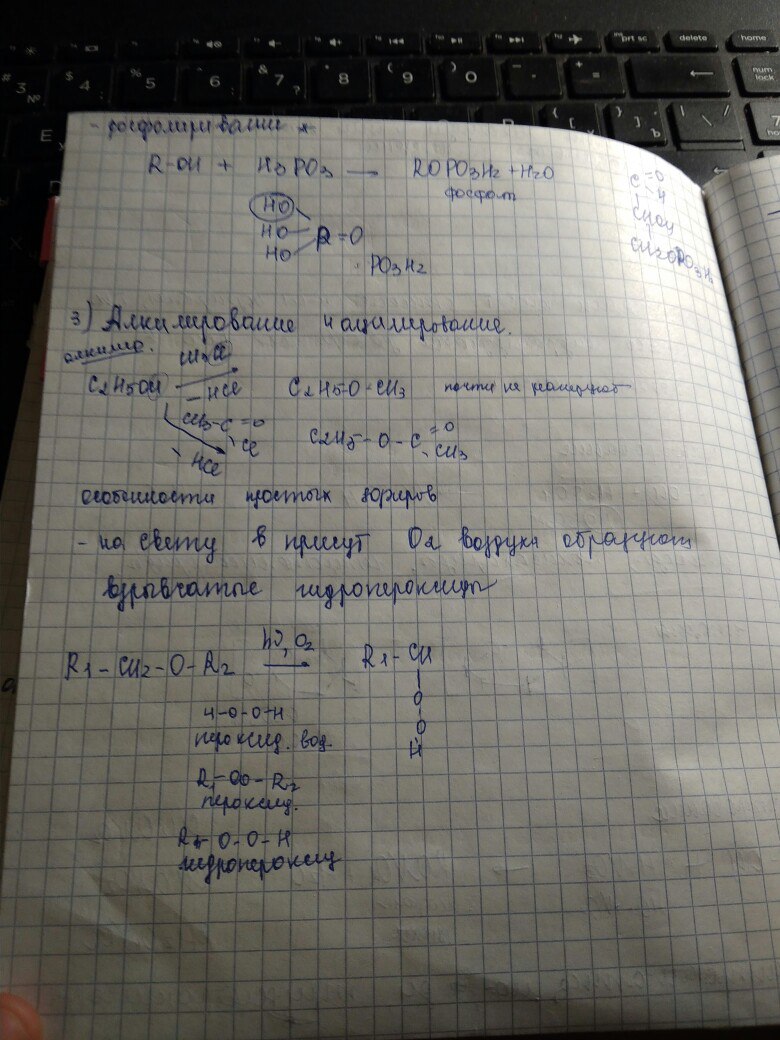 - фосфолирувании
R-OH + H3PO3 → ROPO3H2 + H2O
фосфат
HO
HO
HO
P=O
PO3H2
C=O
H
CHOH
CH2OPO3H2
3) Алкилирование и ацилирование.
алкило.
C2H5OH
- HCl
C2H5-O-CH3 почти не реагируют
CH3-C=O
Cl
HCl
C2H5-O-C=O
CH3
особенности простых эфиров
- на свету в присут O2 воздуха образуют
взрывчатые гидропероксиды
R1-CH2-O-R2
hν, O2
→
R1-CH
O
O
H
H-O-O-H
пероксид. вод.
R1-OO-R2
пероксид.
R1-O-O-H
гидропероксид
# 3 №
$ 4 ;
% 5
^ 6 :
& 7 ?
* 8
( 9
) 0
prt sc
delete
home
num lock
E